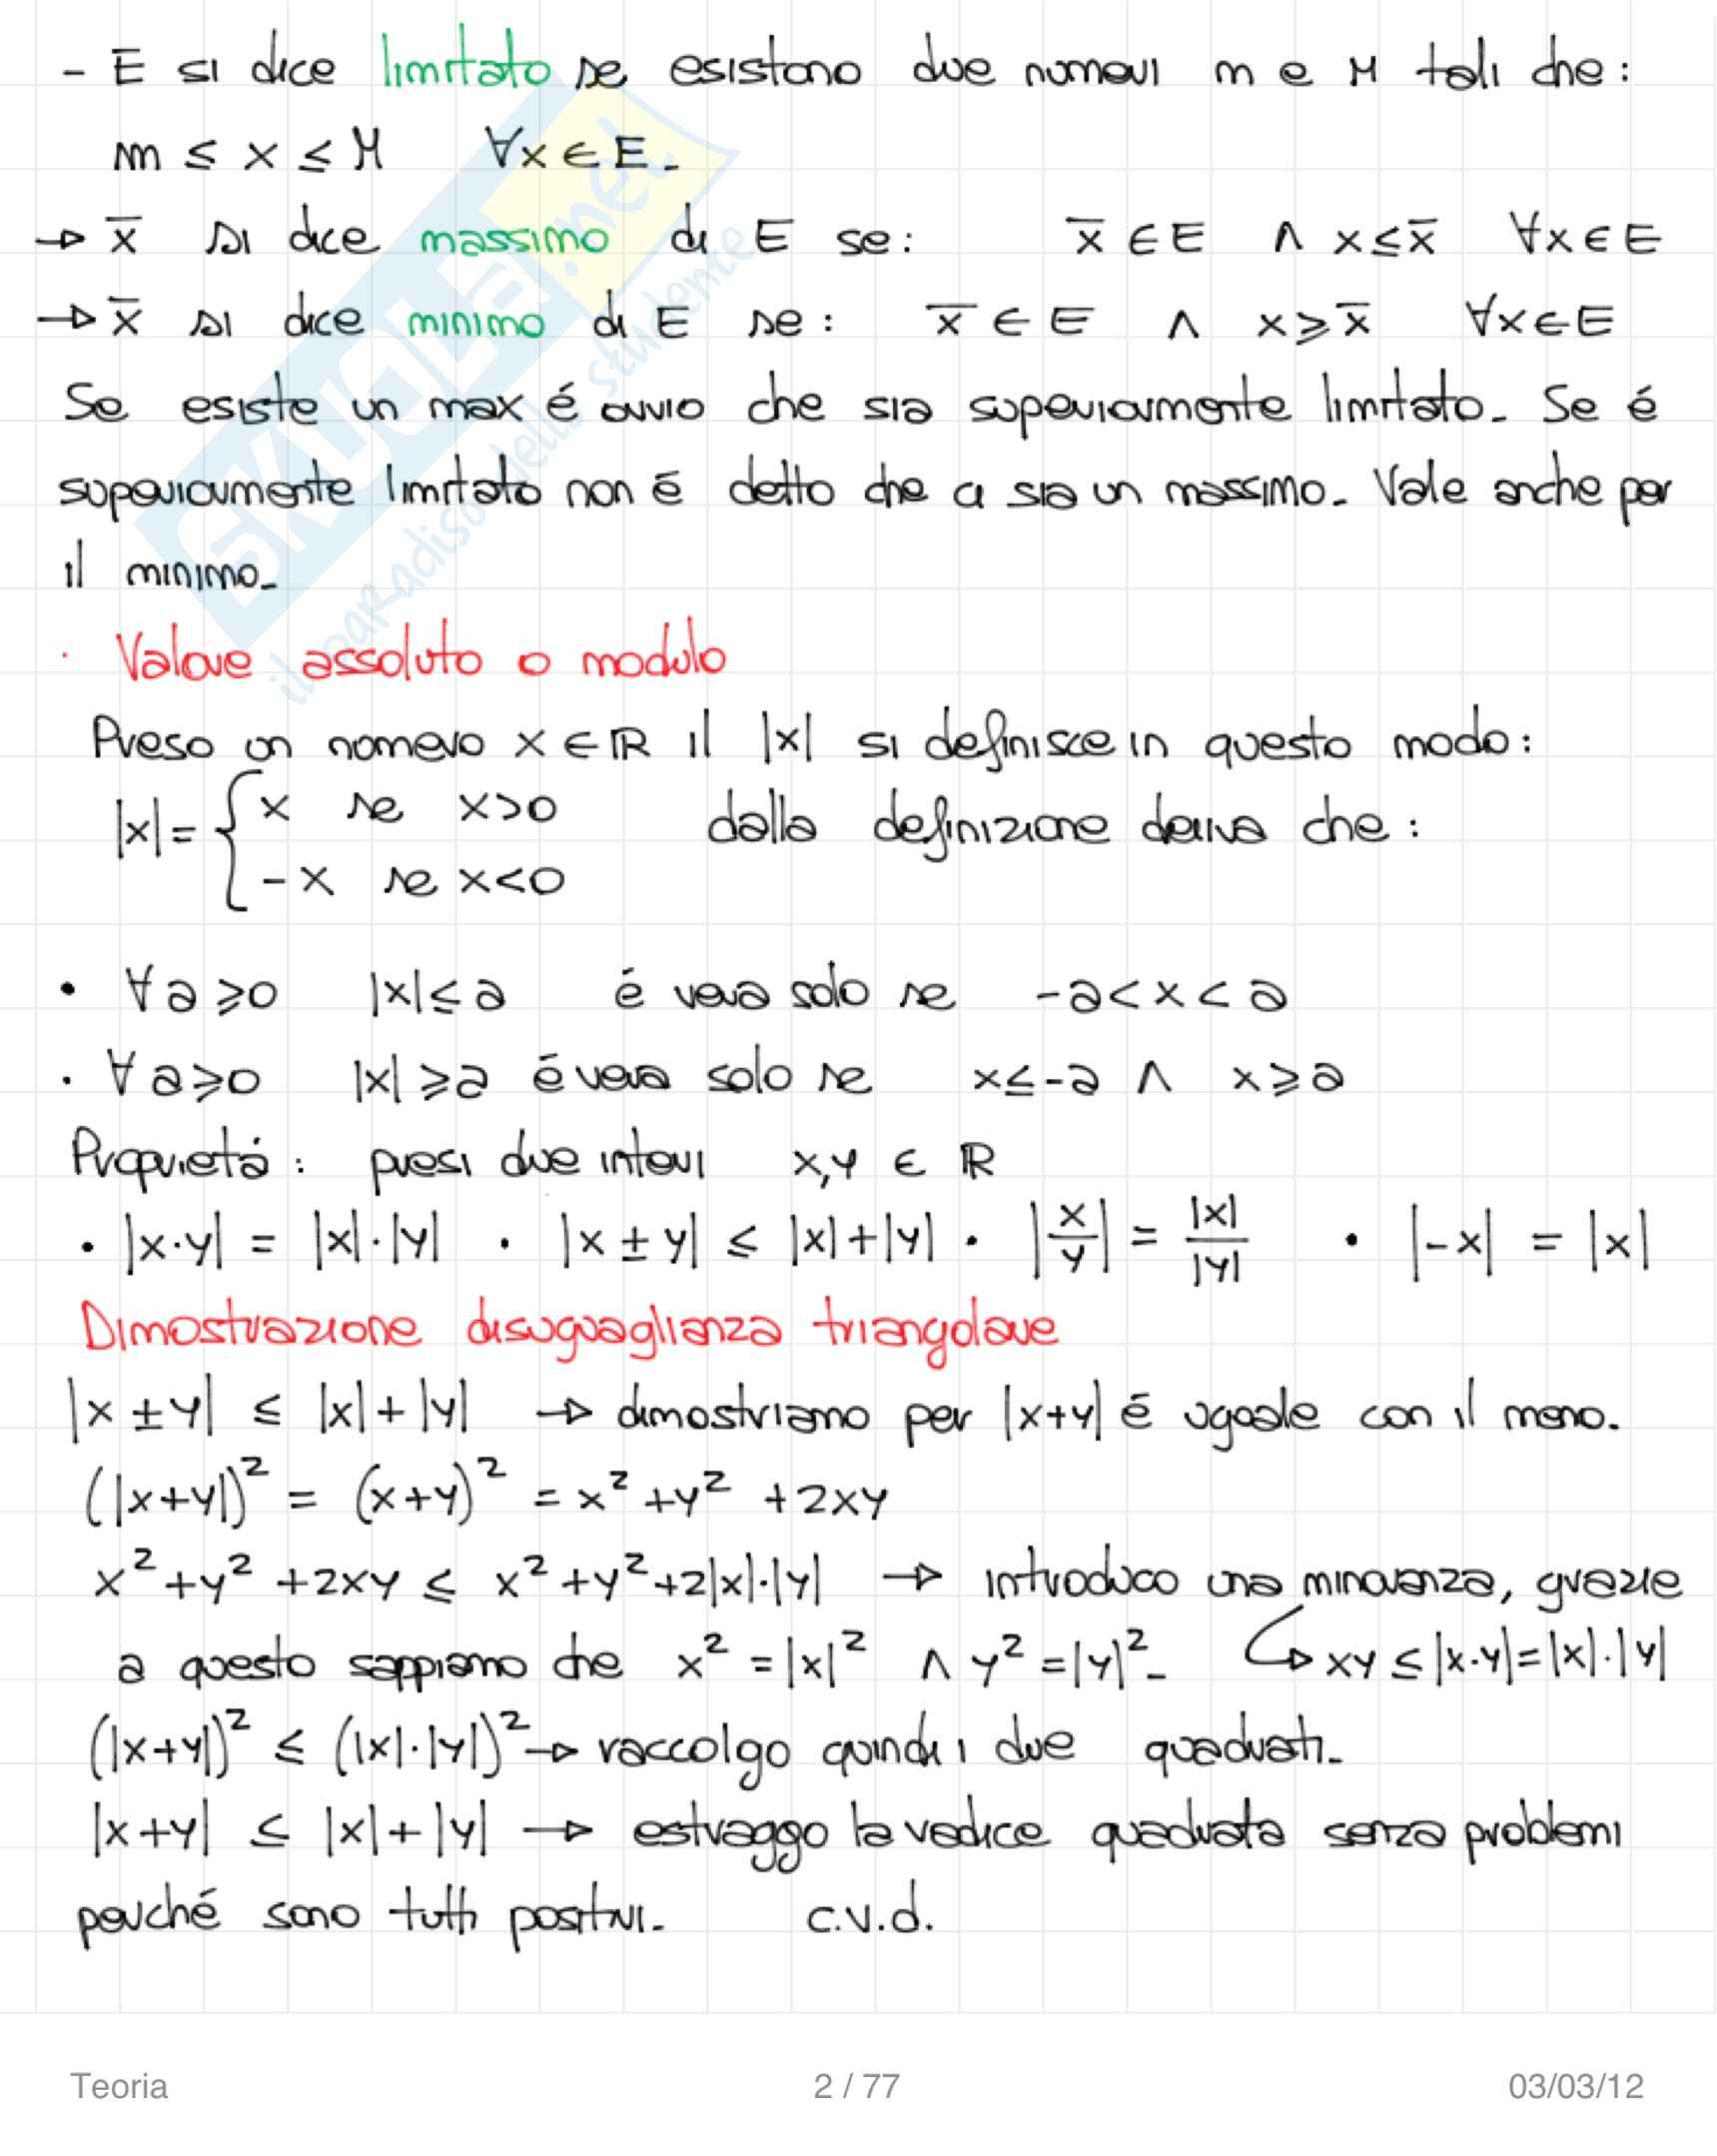 - E si dice limitato se esistono due numeri m e M tali che:
m ≤ x ≤ M ∀x ∈ E.
→ x̅ si dice massimo di E se: x̅ ∈ E ∧ x ≤ x̅ ∀x ∈ E
→ x̅ si dice minimo di E se: x̅ ∈ E ∧ x ⩾ x̅ ∀x ∈ E
Se esiste un max é ovvio che sia superiormente limitato. Se é
superiormente limitato non é detto che ci sia un massimo. Vale anche per
il minimo.
SKUOLA.net
il paradiso dello studente
· Valore assoluto o modulo
Preso un numero x ∈ ℝ il |x| si definisce in questo modo:
|x| = { x se x>0 dalla definizione deriva che:
-x se x<0
• ∀a ⩾ 0 |x| ≤ a é vera solo se -a < x < a
• ∀a ⩾ 0 |x| ⩾ a é vera solo se x ≤ -a ∧ x ⩾ a
Proprietá: presi due interi x,y ∈ ℝ
• |x·y| = |x|·|y| • |x ± y| ≤ |x|+|y| • |x/y| = |x|/|y| • |-x| = |x|
Dimostrazione disuguaglianza triangolare
|x ± y| ≤ |x|+|y| → dimostriamo per |x+y| é uguale con il meno.
(|x+y|)² = (x+y)² = x² + y² + 2xy
x² + y² + 2xy ≤ x² + y² + 2|x|·|y| → introduco una minoranza, grazie
a questo sappiamo che x² = |x|² ∧ y² = |y|². ↳ xy ≤ |x·y| = |x|·|y|
(|x+y|)² ≤ (|x|·|y|)² → raccolgo quindi i due quadrati.
|x+y| ≤ |x|+|y| → estraggo la radice quadrata senza problemi
perché sono tutti positivi. c.v.d.
Teoria 2 / 77 03/03/12